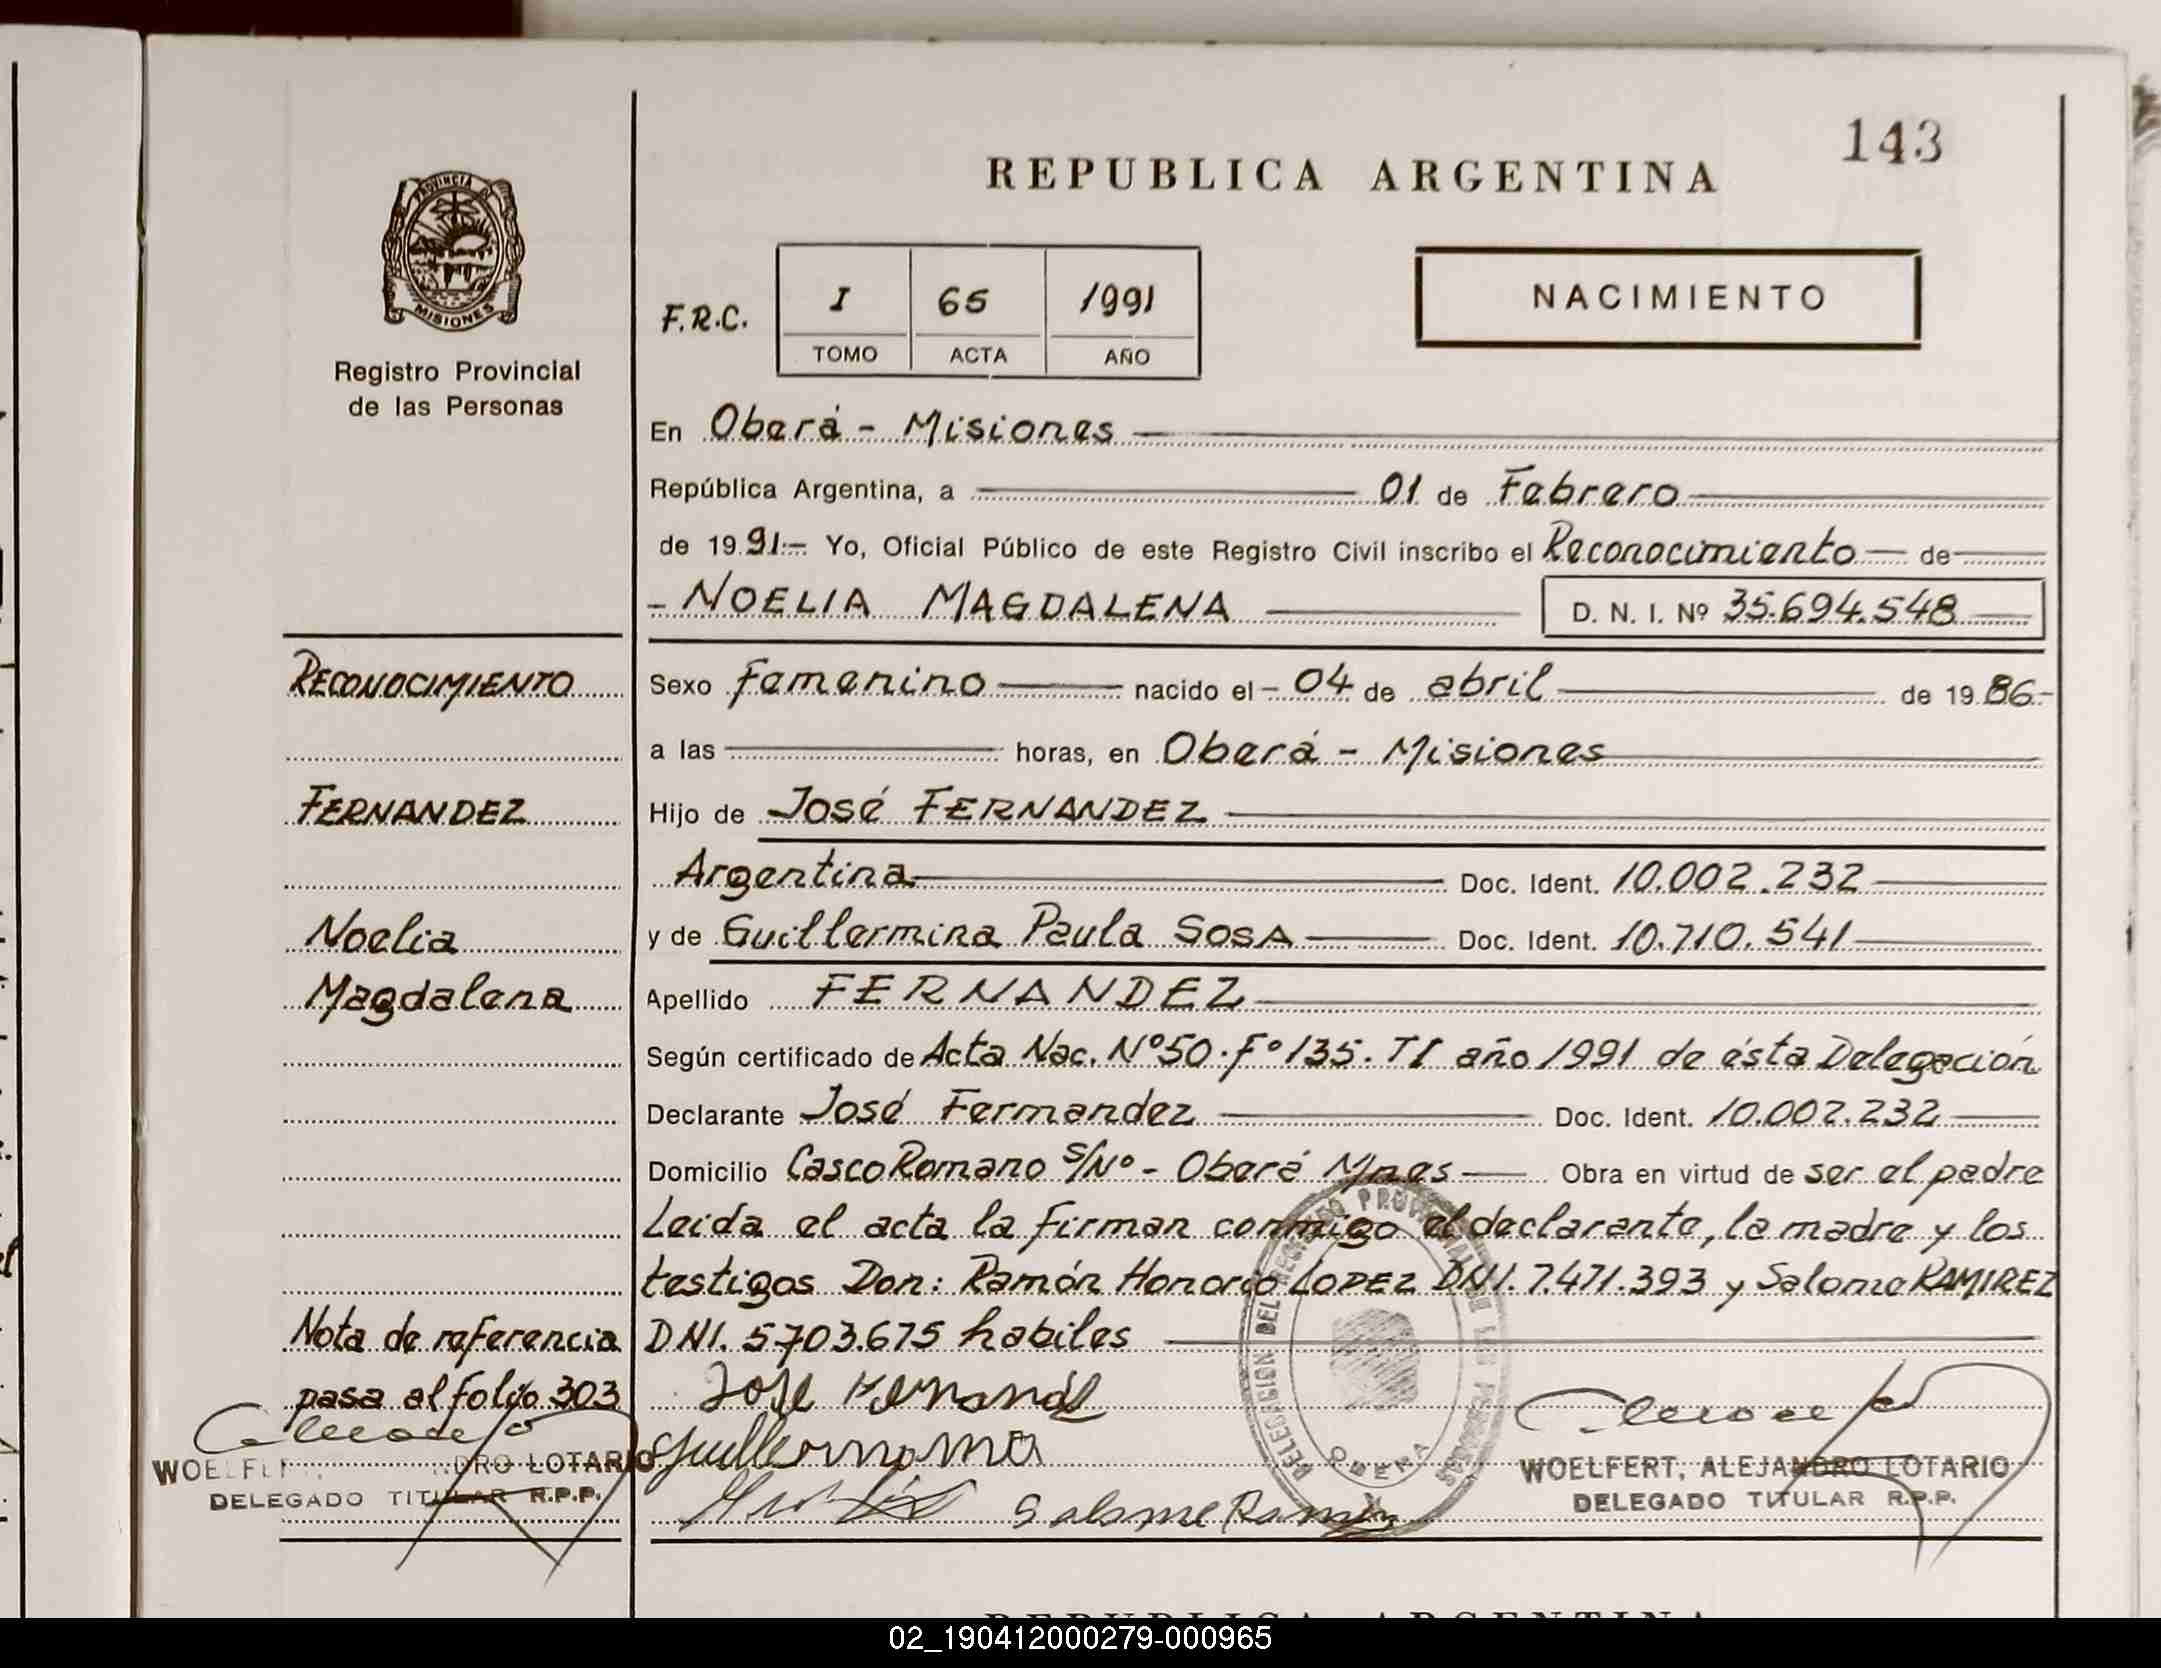 143
REPUBLICA ARGENTINA
PROVINCIA D
MISIONES
Registro Provincial
de las Personas
F.R.C.
I 65 1991
TOMO ACTA AÑO
NACIMIENTO
En Oberá - Misiones
República Argentina, a 01 de Febrero
de 1991.- Yo, Oficial Público de este Registro Civil inscribo el Reconocimiento de
- NOELIA MAGDALENA D. N. I. Nº 35.694.548
RECONOCIMIENTO
FERNANDEZ
Noelia
Magdalena
Nota de referencia
pasa al folio 303
WOELFE DRO LOTARIO
DELEGADO TITULAR R.P.P.
Sexo Femenino nacido el - 04 de abril de 1986.-
a las horas, en Oberá - Misiones
Hijo de José FERNANDEZ
Argentina Doc. Ident. 10.002.232
y de Guillermina Paula SOSA Doc. Ident. 10.710.541
Apellido FERNANDEZ
Según certificado de Acta Nac. Nº50. Fº135. TI año 1991 de ésta Delegación
Declarante José Fernandez Doc. Ident. 10.002.232
Domicilio Casco Romano S/Nº - Oberá Mnes Obra en virtud de ser el padre
Leida el acta la firman conmigo el declarante, la madre y los
testigos Don: Ramón Honorio LOPEZ DNI. 7.471.393 y Salome RAMIREZ
DNI. 5703.675 habiles
Jose
Salome Ramirez
DELEGACION DEL REGISTRO PROVINCIAL DE LAS PERSONAS
OBERA
WOELFERT, ALEJANDRO LOTARIO
DELEGADO TITULAR R.P.P.
REPUBLICA ARGENTINA
02_190412000279-000965